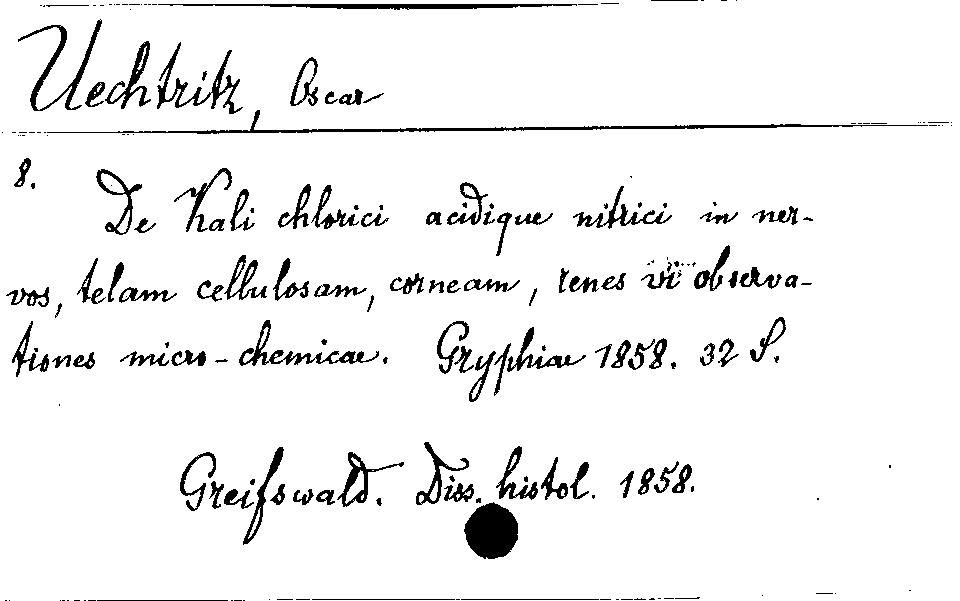 Uechtritz, Oscar
8.
De Kali chlorici acidique nitrici in ner-
vos, telam cellulosam, corneam, renes vi observa-
tiones micro-chemicae. Gryphiae 1858. 32 S.
Greifswald. Diss. histol. 1858.